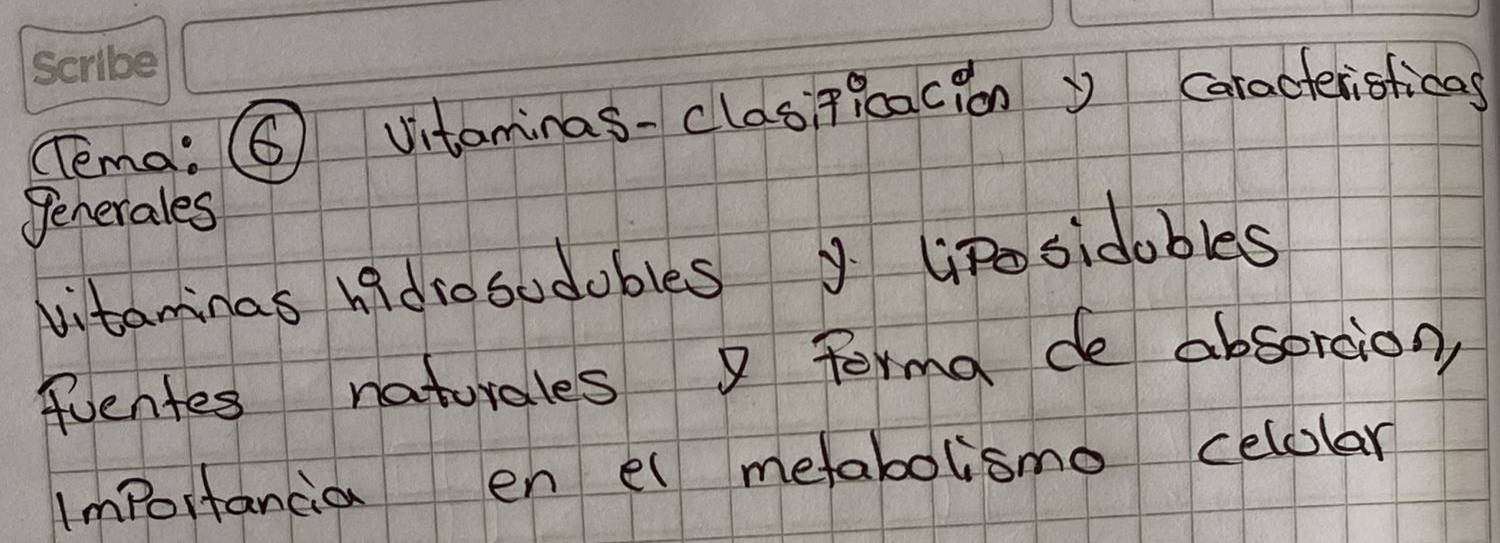 Scribe
Tema: 6 Vitaminas - clasificación y caracteristicas
generales
vitaminas hidrosudubles y liposidubles
fuentes naturales y forma de absorcion,
Importancia en el metabolismo celular